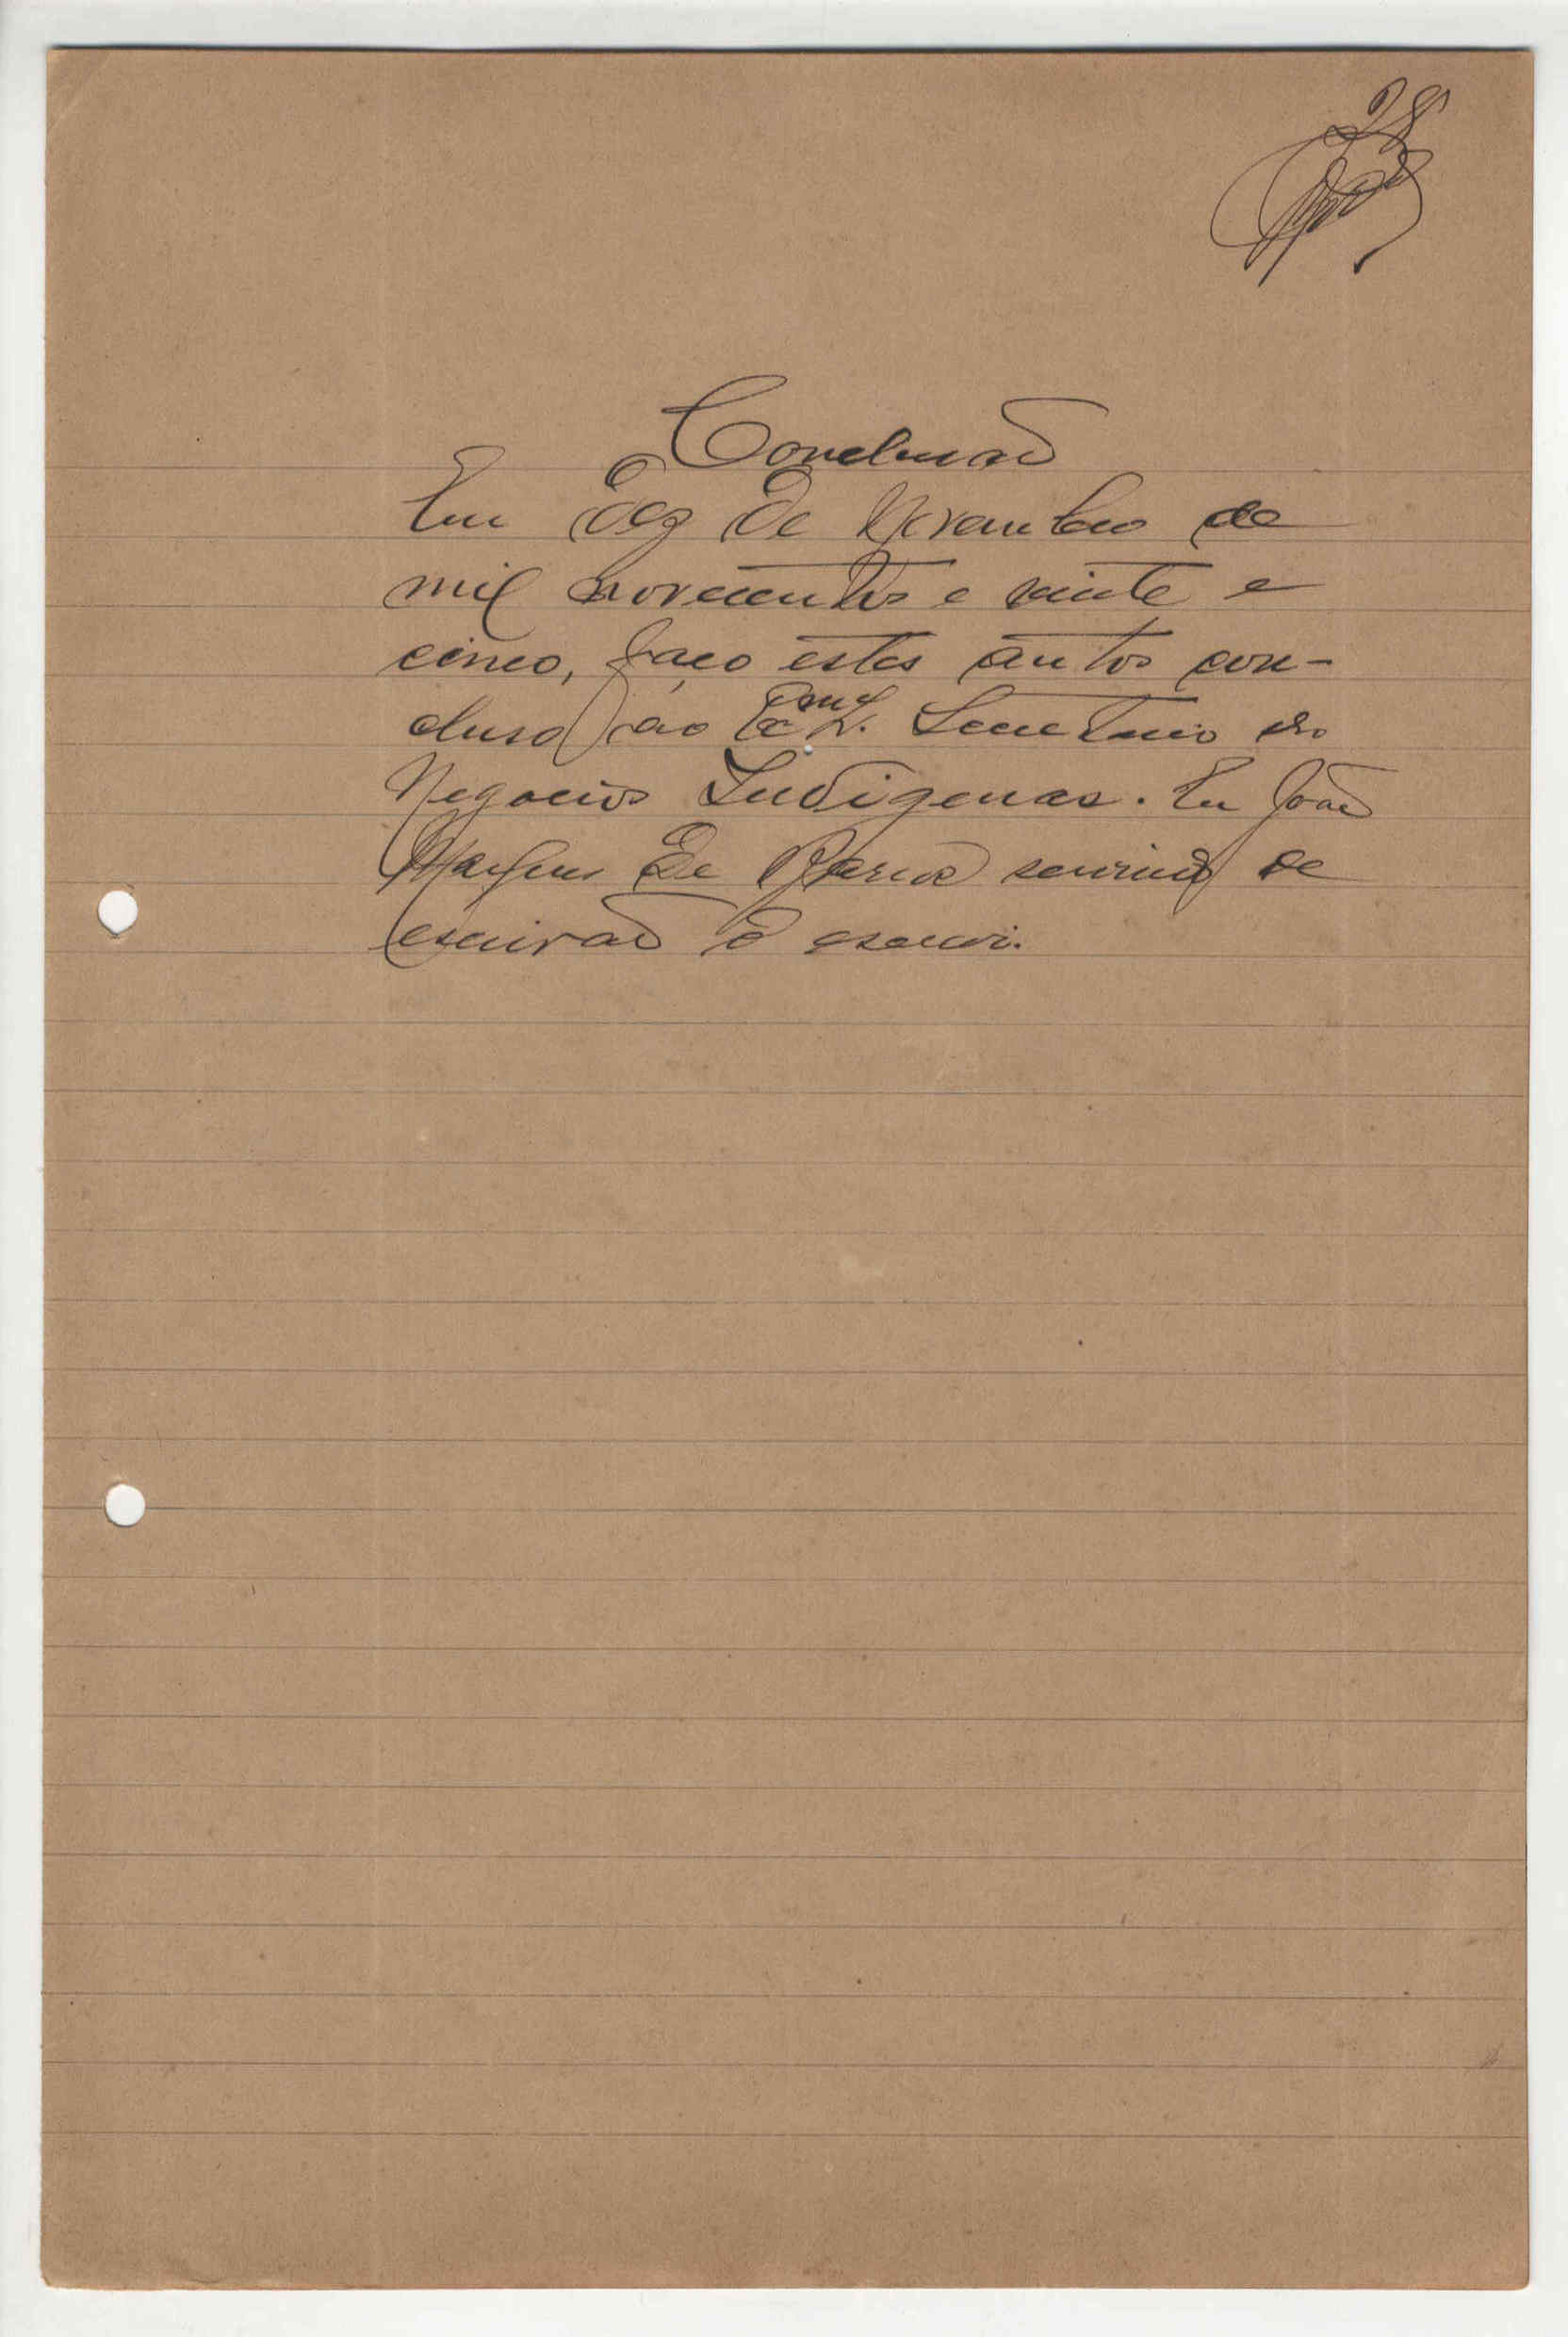 28
Conclusão
Em dez de Novembro de
mil novecentos e vinte e
cinco, faço estes autos con-
cluso ao Exmº. Secretario dos
Negocios Indigenas. Eu João
Marques de servindo de
escrivão o escrevi.